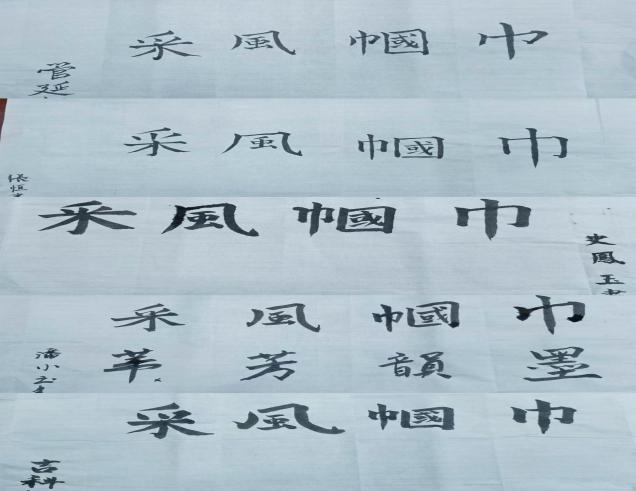 巾幗風采
管延
巾幗風采
巾幗風采
史鳳玉
巾幗風采
墨韻芳華
潘小
巾幗風采
吉科